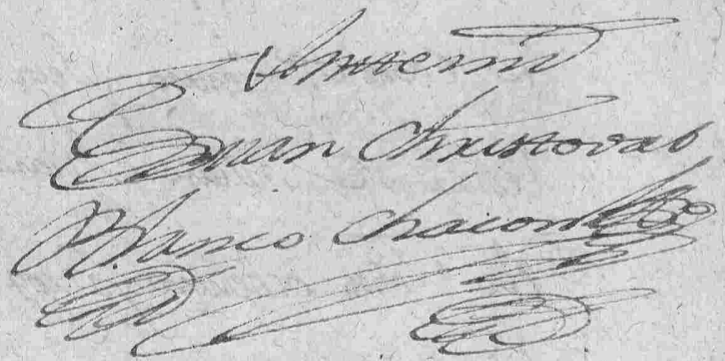 Ante mi
Juan Christoval
Blanco Chacon